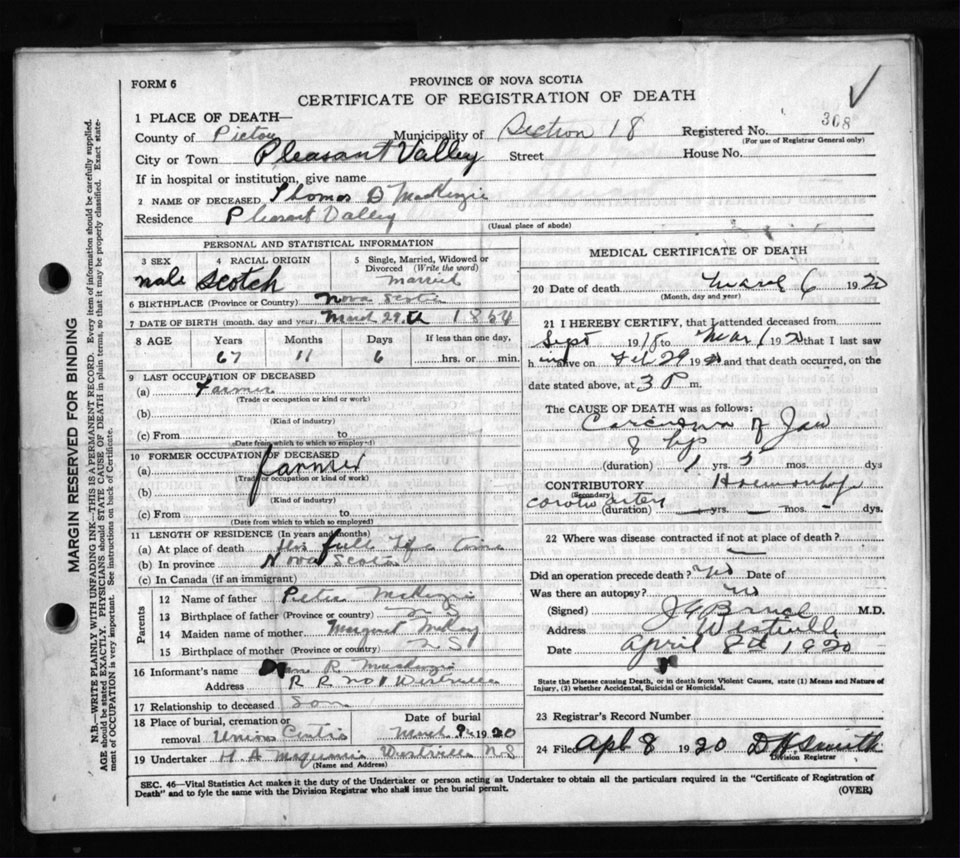 FORM 6
PROVINCE OF NOVA SCOTIA
CERTIFICATE OF REGISTRATION OF DEATH
1 PLACE OF DEATH—
County of Pictou Municipality of Section 18 Registered No. 368
(For use of Registrar General only)
City or Town Pleasant Valley Street House No.
If in hospital or institution, give name
2 NAME OF DECEASED Thomas D MacKenzie
Residence Pleasant Valley
(Usual place of abode)
PERSONAL AND STATISTICAL INFORMATION
3 SEX 4 RACIAL ORIGIN 5 Single, Married, Widowed or Divorced (Write the word)
male Scotch married
6 BIRTHPLACE (Province or Country) Nova Scotia
7 DATE OF BIRTH (month, day and year) March 29th
8 AGE Years Months Days If less than one day,
67 11 6 hrs. or min.
9 LAST OCCUPATION OF DECEASED
(a) Farmer
(Trade or occupation or kind or work)
(b)
(Kind of industry)
(c) From to
(Date from which to which so employed)
10 FORMER OCCUPATION OF DECEASED
(a) farmer
(Trade or occupation or kind of work)
(b)
(Kind of industry)
(c) From to
(Date from which to which so employed)
11 LENGTH OF RESIDENCE (In years and months)
(a) At place of death his full life time
(b) In province Nova Scotia
(c) In Canada (if an immigrant)
Parents
12 Name of father Peter McKenzie
13 Birthplace of father (Province or country) N S
14 Maiden name of mother Margaret McKay
15 Birthplace of mother (Province or country) N S
16 Informant's name R. MacKenzie
Address R R No 1 Westville
17 Relationship to deceased Son
18 Place of burial, cremation or removal Union Date of burial March 9th 1920
19 Undertaker H A Westville N S
(Name and Address)
MEDICAL CERTIFICATE OF DEATH
20 Date of death March 6 1920
(Month, day and year)
21 I HEREBY CERTIFY, that I attended deceased from
Sept 1918 to Mar 1 1920 that I last saw
him alive on Feb 29 1920 and that death occurred, on the
date stated above, at 3 P m.
The CAUSE OF DEATH was as follows:
Carcinoma of Jaw
& lip
(duration) 1 yrs. 5 mos. dys
CONTRIBUTORY Haemorrhage
(Secondary)
carotid artery
(duration) — yrs. — mos. — dys.
22 Where was disease contracted if not at place of death? —
Did an operation precede death? Yes Date of
Was there an autopsy? no
(Signed) M.D.
Address Westville
Date April 8th 1920
State the Disease causing Death, or in death from Violent Causes, state (1) Means and Nature of Injury, (2) whether Accidental, Suicidal or Homicidal.
23 Registrar's Record Number
24 Filed Apl 8 1920 D H Smith
Division Registrar
SEC. 46—Vital Statistics Act makes it the duty of the Undertaker or person acting as Undertaker to obtain all the particulars required in the "Certificate of Registration of
Death" and to fyle the same with the Division Registrar who shall issue the burial permit. (OVER)
MARGIN RESERVED FOR BINDING
N.B.—WRITE PLAINLY WITH UNFADING INK—THIS IS A PERMANENT RECORD. Every item of information should be carefully supplied.
AGE should be stated EXACTLY. PHYSICIANS should STATE CAUSE OF DEATH in plain terms, so that it may be properly classified. Exact state-
ment of OCCUPATION is very important. See instructions on back of Certificate.